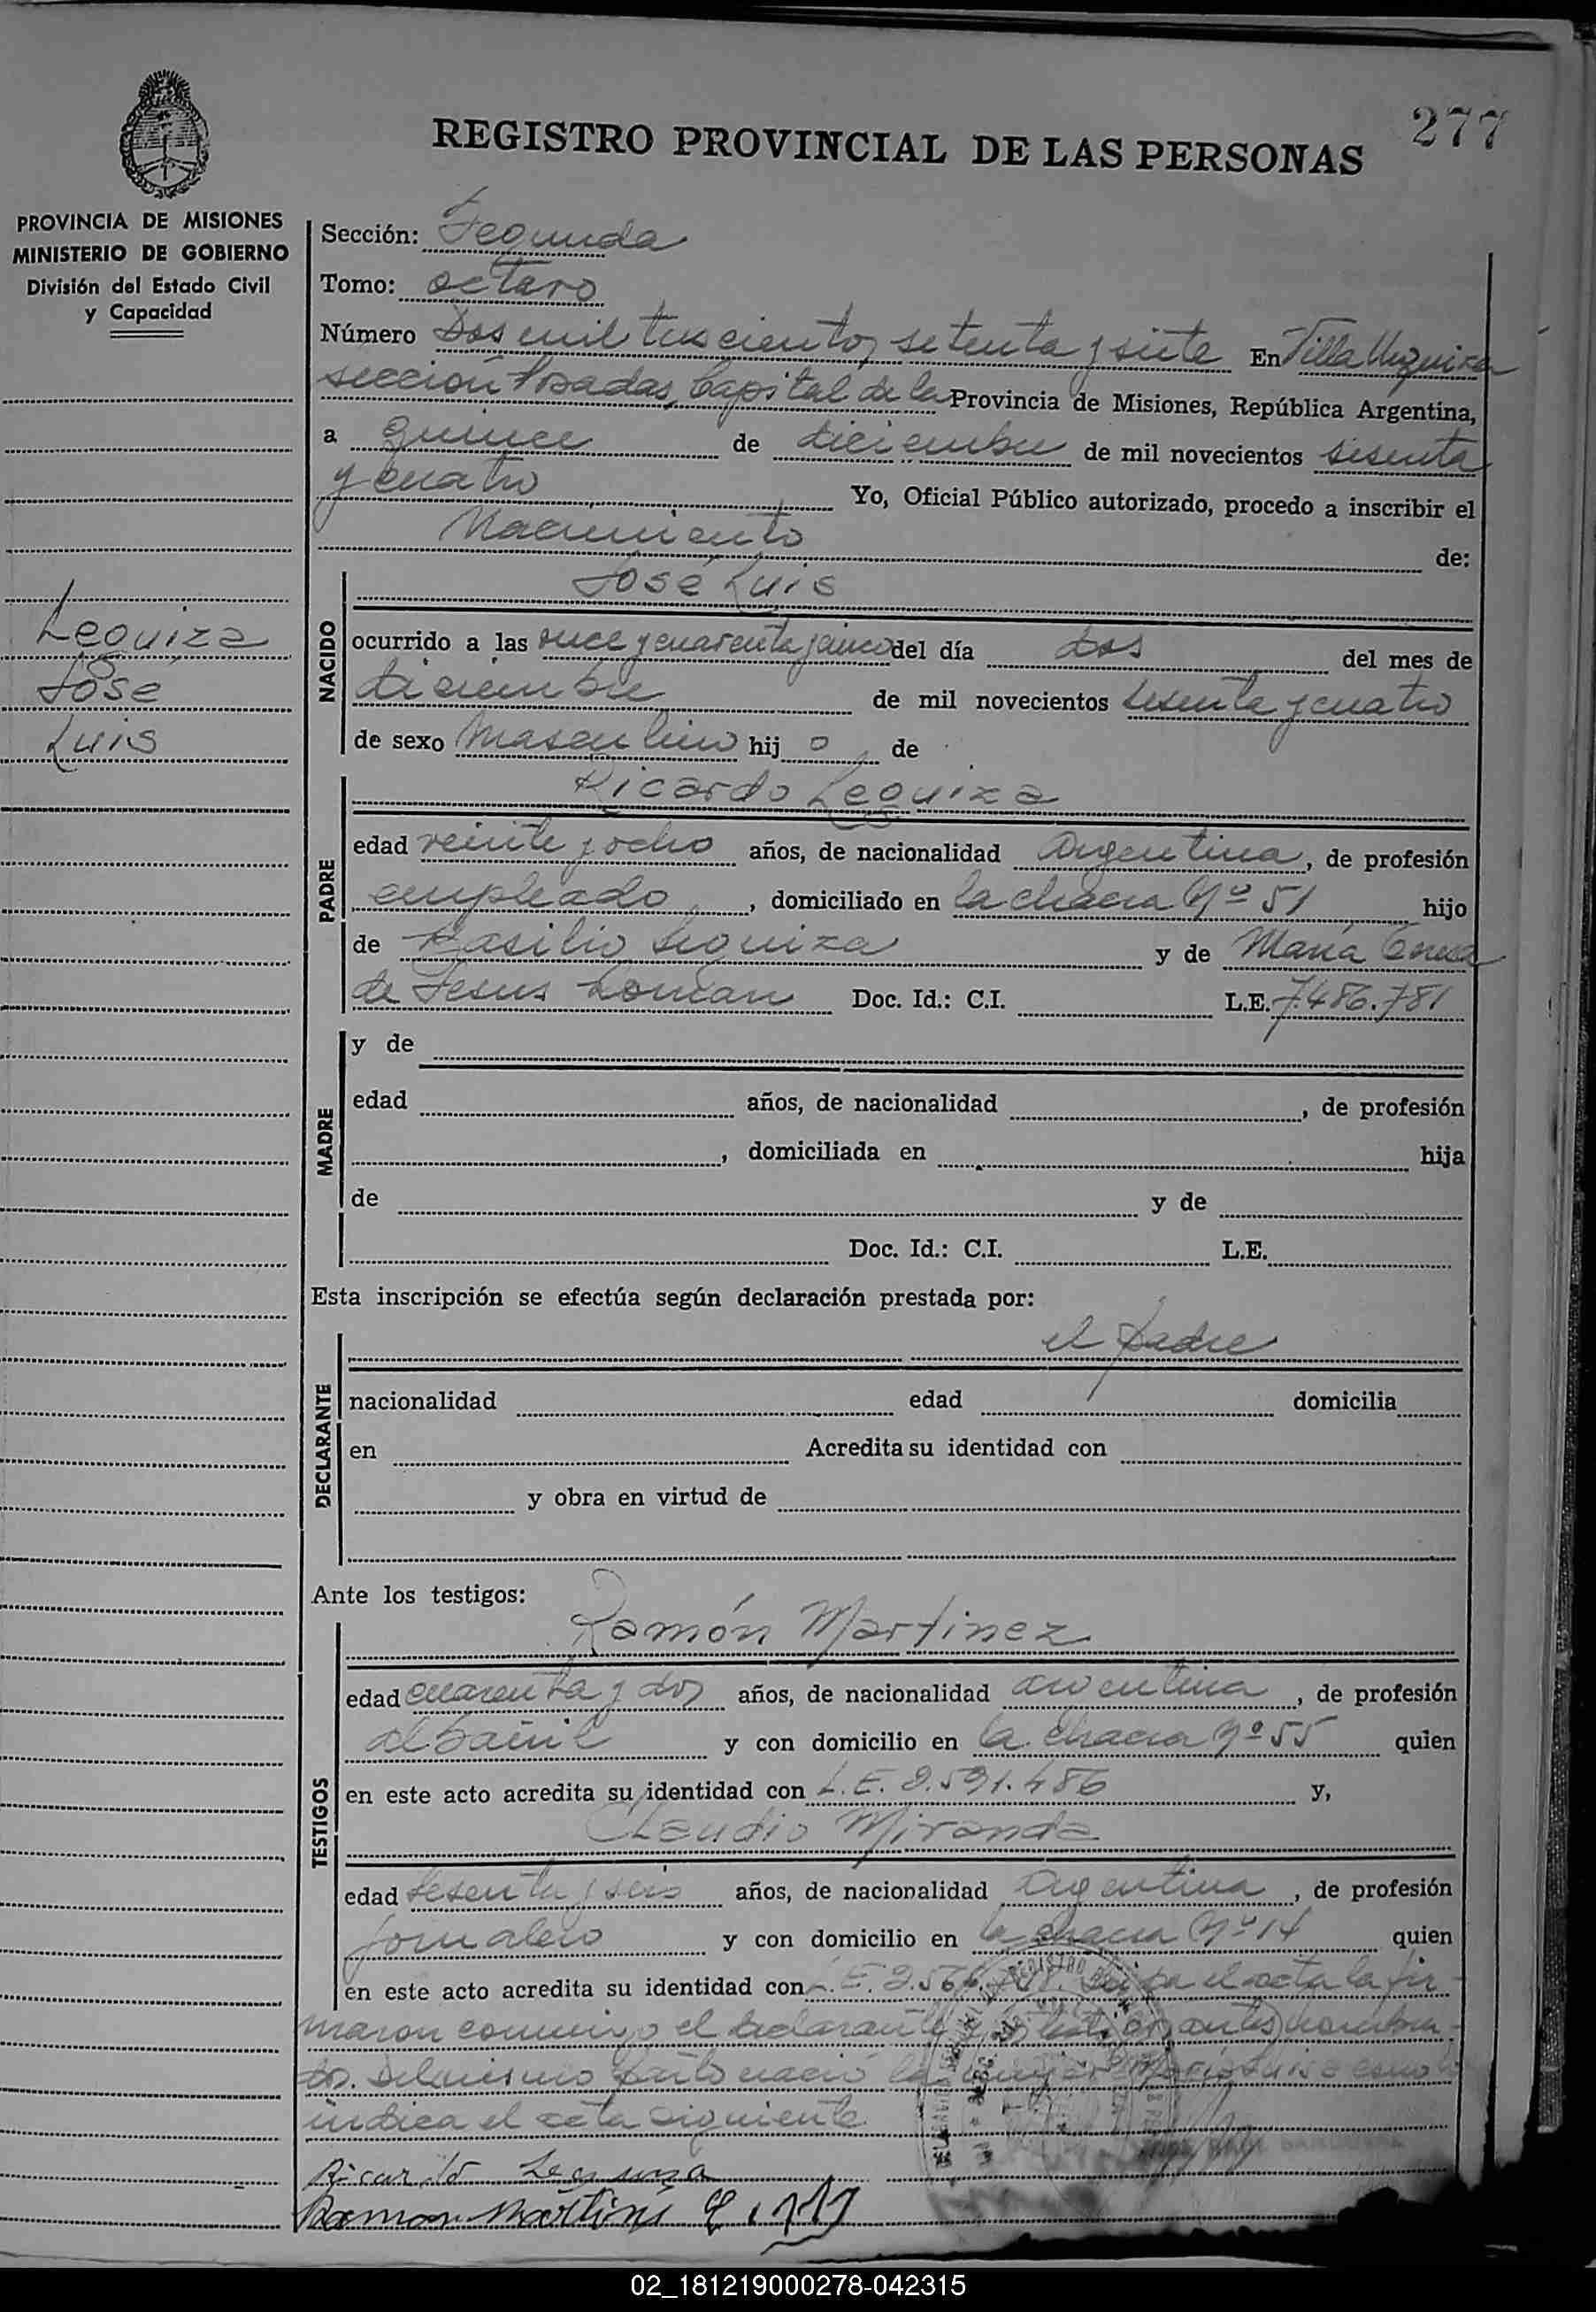 277
REGISTRO PROVINCIAL DE LAS PERSONAS
PROVINCIA DE MISIONES
MINISTERIO DE GOBIERNO
División del Estado Civil
y Capacidad
Leguiza
José
Luis
Sección: Segunda
Tomo: octavo
Número Dos mil trescientos setenta y siete En Villa Urquiza
sección Posadas, Capital de la Provincia de Misiones, República Argentina,
a quince de diciembre de mil novecientos sesenta
y cuatro Yo, Oficial Público autorizado, procedo a inscribir el
Nacimiento de:
NACIDO
José Luis
ocurrido a las once y cuarenta y cinco del día dos del mes de
diciembre de mil novecientos sesenta y cuatro
de sexo Masculino hij o de
PADRE
Ricardo Leguiza
edad veinte y ocho años, de nacionalidad Argentina, de profesión
empleado, domiciliado en la chacra Nº 51 hijo
de Basilio Leguiza y de María Teresa
de Jesus Doc. Id.: C.I. L.E. 7.486.781
MADRE
y de
edad años, de nacionalidad , de profesión
, domiciliada en hija
de y de
Doc. Id.: C.I. L.E.
Esta inscripción se efectúa según declaración prestada por:
DECLARANTE
el padre
nacionalidad edad domicilia
en Acredita su identidad con
y obra en virtud de
Ante los testigos:
TESTIGOS
Ramón Martinez
edad cuarenta y dos años, de nacionalidad argentina, de profesión
albañil y con domicilio en la chacra Nº 55 quien
en este acto acredita su identidad con L.E. 2.591.486 y,
Claudio Miranda
edad sesenta y seis años, de nacionalidad Argentina, de profesión
jornalero y con domicilio en la chacra Nº 14 quien
en este acto acredita su identidad con L.E. Leida el acta la fir-
maron conmigo el declarante y testigos antes nombra-
dos. Del mismo parto nació la María Luisa como
indica el acta siguiente
Ricardo Leguiza
Ramon Martines
02_181219000278-042315